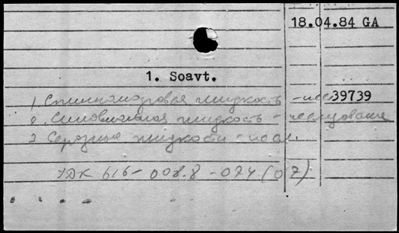 18.04.84 GA
1. Soavt.
1. Спинномозговая жидкость - исс 39739
2. Синовиальная жидкость - исследование
3. Серозные жидкости - иссл.
УДК 616-008.8-074(02)